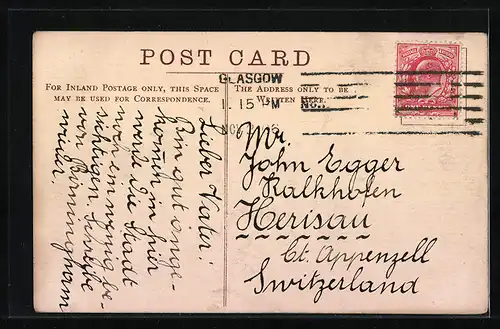 POST CARD
FOR INLAND POSTAGE ONLY, THIS SPACE
MAY BE USED FOR CORRESPONDENCE.
THE ADDRESS ONLY TO BE
WRITTEN HERE.
GLASGOW
1. 15 PM
NO
Lieber Vater!
Bin gut ange-
kommen in hier
werde die Stadt
noch ein wenig be-
sichtigen. Schreibe
von Birmingham
wieder.
Mr.
John Egger
Kalkhofen
Herisau
Ct. Appenzell
Switzerland